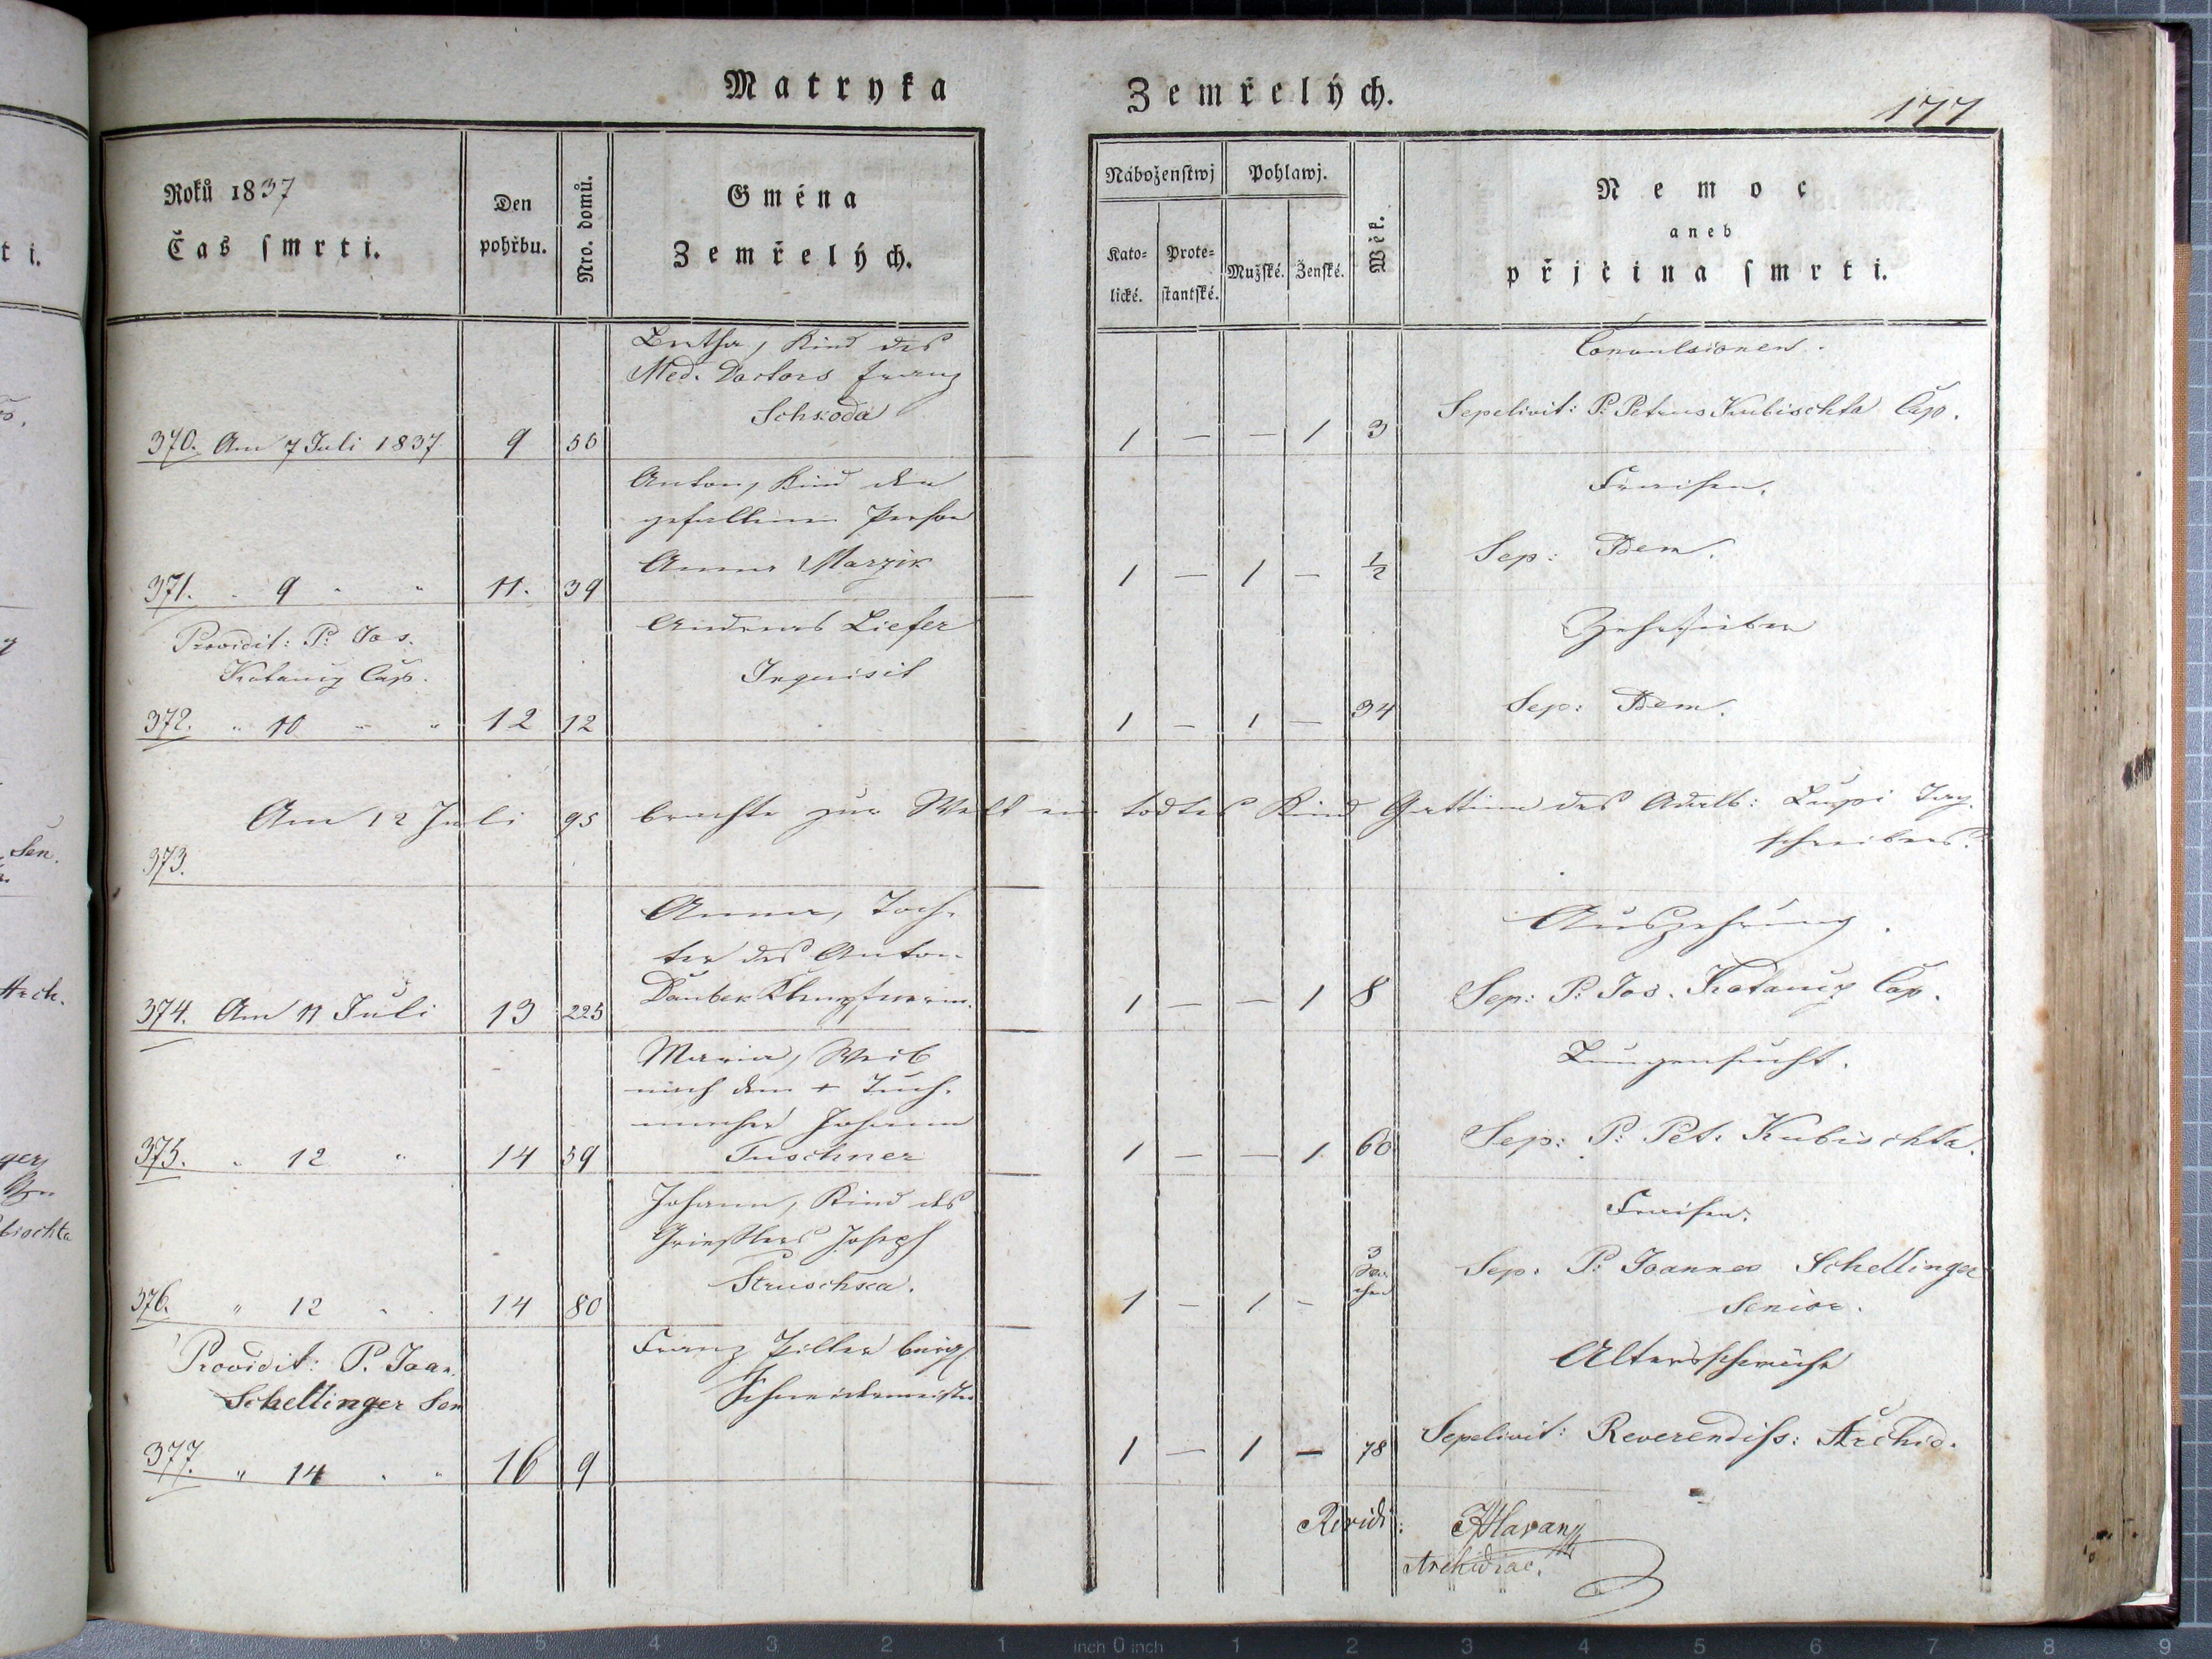 Matryka Zemřelých.
177
Roků 1837
Čas smrti.
Den
pohřbu.
Nro. domů.
Gména
Zemřelých.
Náboženstwj
Pohlawj.
Kato-
lické.
Prote-
stantské.
Mužské.
Ženské.
Wěk.
Nemoc
aneb
přjčina smrti.
Bertha, Kind des
Med. Doctors Franz
Schkoda
370. Am 7 Juli 1837 9 56
1 — — 1 3
Convulsionen.
Sepelivit: P. Petrus Kubischta Cap.
Anton, Kind der
gefallenen Person
Anna Marzik
371. " 9 " " 11. 39
1 — 1 — ½
Fraisen.
Sep: Idem.
Providit: P. Jos.
Cap.
372. " 10 " " 12 12
Andreas Liefer
Inquisit
1 — 1 — 34
Zehrfieber
Sep: Idem.
Am 12 Juli 95 brachte zur Welt ein todtes Kind Gattinn des Adalb:
schreibers.
373.
Anna, Toch-
ter des Anton
Dauber
374. Am 11 Juli 13 225
1 — — 1 8
Auszehrung.
Sep: P. Jos. Cap.
Maria, Weib
nach dem + Tuch-
macher Johann
Tuschner
375. " 12 " 14 59
1 — — 1 60
Lungensucht.
Sep: P. Pet. Kubischta.
Johann, Kind des
Grießlers Joseph
Struschka.
376. " 12 " " 14 80
1 — 1 — 3
Wo-
chen
Fraisen.
Sep: P. Joannes Schellinger
Senior.
Providit: P. Joan.
Schellinger Sen
377. " 14 " " 16 9
Franz Piller bürgl
Schneidermeister
1 — 1 — 78
Altersschwäche
Sepelivit: Reverendiss: Archid.
Revidi:
Archidiac.